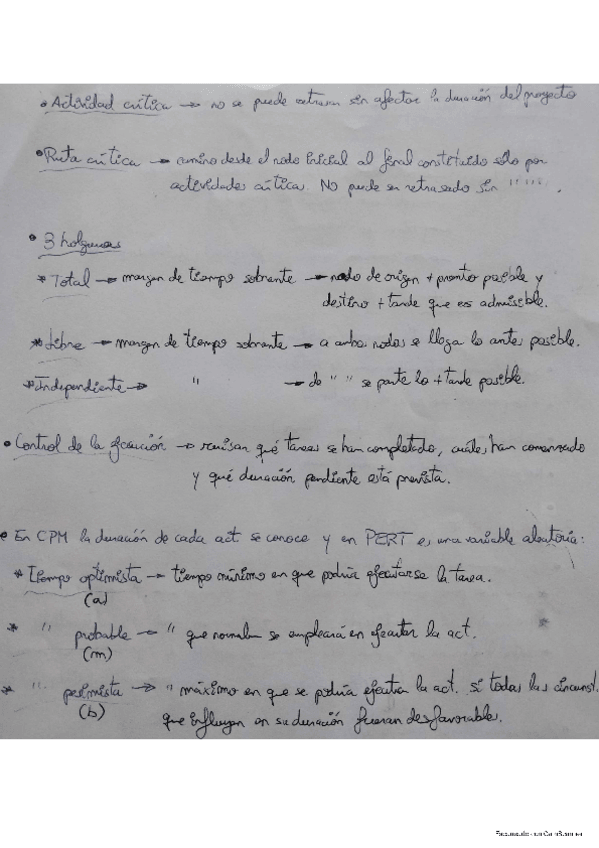 • Actividad crítica → no se puede retrasar sin afectar la duración del proyecto
• Ruta crítica → camino desde el nodo inicial al final constituido sólo por
actividades crítica. No puede ser retrasado sin " " " " .
• 3 holguras
* Total → margen de tiempo sobrante → nodo de origen + pronto posible y
destino + tarde que es admisible.
* Libre → margen de tiempo sobrante → a ambos nodos se llega lo antes posible.
* Independiente → " → de " " se parte lo + tarde posible.
• Control de la ejecución → revisar qué tareas se han completado, cuáles han comenzado
y qué duración pendiente está prevista.
• En CPM la duración de cada act se conoce y en PERT es una variable aleatoria:
* Tiempo optimista → tiempo mínimo en que podría ejecutarse la tarea.
(a)
* " probable → " que normalm se empleará en ejecutar la act.
(m)
* " pesimista → " máximo en que se podría ejecutar la act. si todas las circunst.
(b) que influyen en su duración fueran desfavorables.